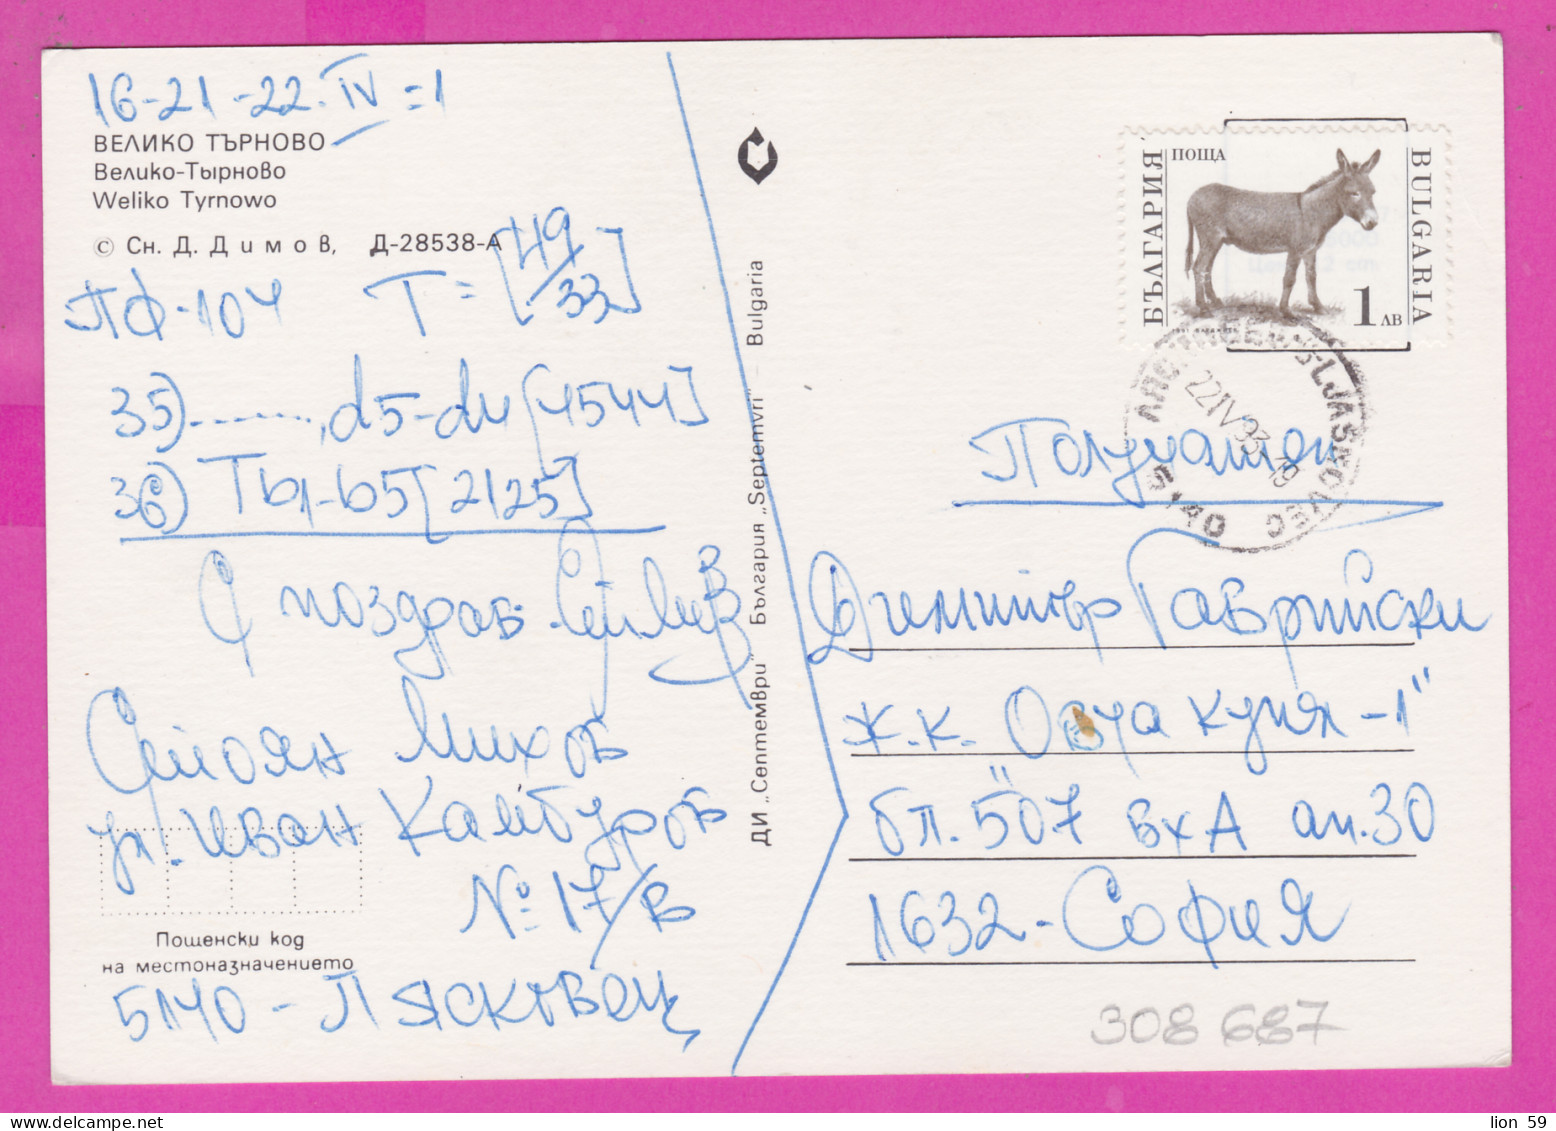 16-21-22.IV=1
ВЕЛИКО ТЪРНОВО
Велико-Тырново
Weliko Tyrnowo
© Сн. Д. Димов, Д-28538-А
ПФ-104 T=[49/33]
35)........, d5-d4 [4544]
36) Тb1-b5 [2125]
С поздрав.
Стоян Михов
ул. Иван Камбуров
№ 17/В
Пощенски код
на местоназначението
5140 - Лясковец
ДИ „Септември" България „Septemvri" Bulgaria
БЪЛГАРИЯ
ПОЩА
BULGARIA
1 ЛВ
22 IV 93.19
LJASKOVEC
5140
Получател
Димитър Гаврийски
ж.к. „Овча купел-1"
бл. 507 вх А ап. 30
1632 - София
308 687
lion 59